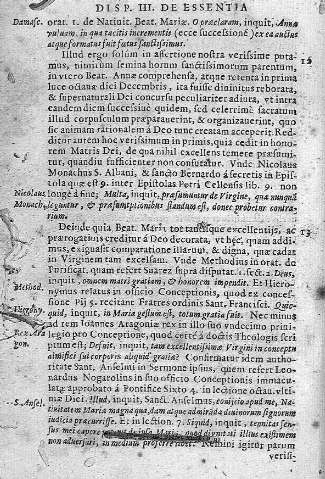 DISP. III. DE ESSENTIA
Damasc. orat. 1. de Natiuit. Beat. Mariæ. O præclaram, inquit, Annæ
vuluam, in qua tacitis incrementis (ecce successionē) ex ea auctus
atque formatus fuit fœtus sanctissimus.
Illud ergo solùm in assertione nostra verisime puta-
mus, nimirum semina horum sanctissimorum parentum,
in vtero Beat. Annæ comprehensa, atque retenta in prima
luce octaua dici Decembris, ita fuisse diuinitus reborata,
& supernaturali Dei concursu peculiariter adiuta, vt intra
eandem diem successiuè quidem, sed celerrimè sacratum
illud corpusculum præparauerint, & organizauerint, quo
sic animam rationalem à Deo tunc creatam acceperit. Red-
ditor autem hoc verisimum in primis, quia cedit in hono-
rem Matris Dei, de qua nihil excellens temere præsumi-
tur, quandiu sufficienter non confutatur. Vnde Nicolaus
Monachus S. Albani, & sancto Bernardo à secretis in Epi-
stola quæ est 9. inter Epistolas Petri Cellensis lib. 9. non
Nicolaus longè à fine, Multa, inquit, præsumimus de Virgine, quæ nunquā
Monach. leguntur, & præsumptionibus standum est, donec probetur contra-
rium.
Deinde quia Beat. Mariā tot tantisque excellentijs, ac
prærogatiuis creditur à Deo decorata, vt hęc, quam addi-
mus, exiguast comparatione illarum, & digna, quæ cadat
in Virginem tam excelsam. Vnde Methodius in orat. de
Purificat. quam refert Suarez supra disputat. 1. sect. 2. Deus,
Method. inquit, omnem matri gratiam, & honorem impendit. Et Hiero-
nymus relatus in officio Conceptionis, quod ex conces-
sione Pij 5. recitant Fratres ordinis Sant. Francisci. Quic-
Hieronym. quid, inquit, in Maria gestum est, totum gratia fuit. Nec minus
Rex Ara- ad rem Ioannes Aragoniæ rex in illo suo vndecimo priui-
gon. legio pro Conceptione, quod certè à doctis Theologis scri-
ptum est; Defuit, inquit, tam excellentissimæ Virgini in conceptu
almifici sui corporis aliquid gratiæ? Confirmatur idem autho-
ritate Sant. Anselmi in Sermone ipsius, quem refert Leo-
nardus Nogarolins in suo officio Conceptionis immacu-
latæ approbato à Pontifice Sixto 4. in lectione octau. ulti-
S. Ansel. ma Dici. Illud, inquit, Sanct. Anselmus, coniicio apud me, Na-
tiuitatem Maria magna quadam atque admiranda diuinorum signorum
iudicia præcurrisse. Et in lection. 7. Siquid, inquit, tenuitas sen-
sus mei capere quod dignitati illius existimem
non aduersari, in medium proferre non Remini igitur parum
verisi-
12
13